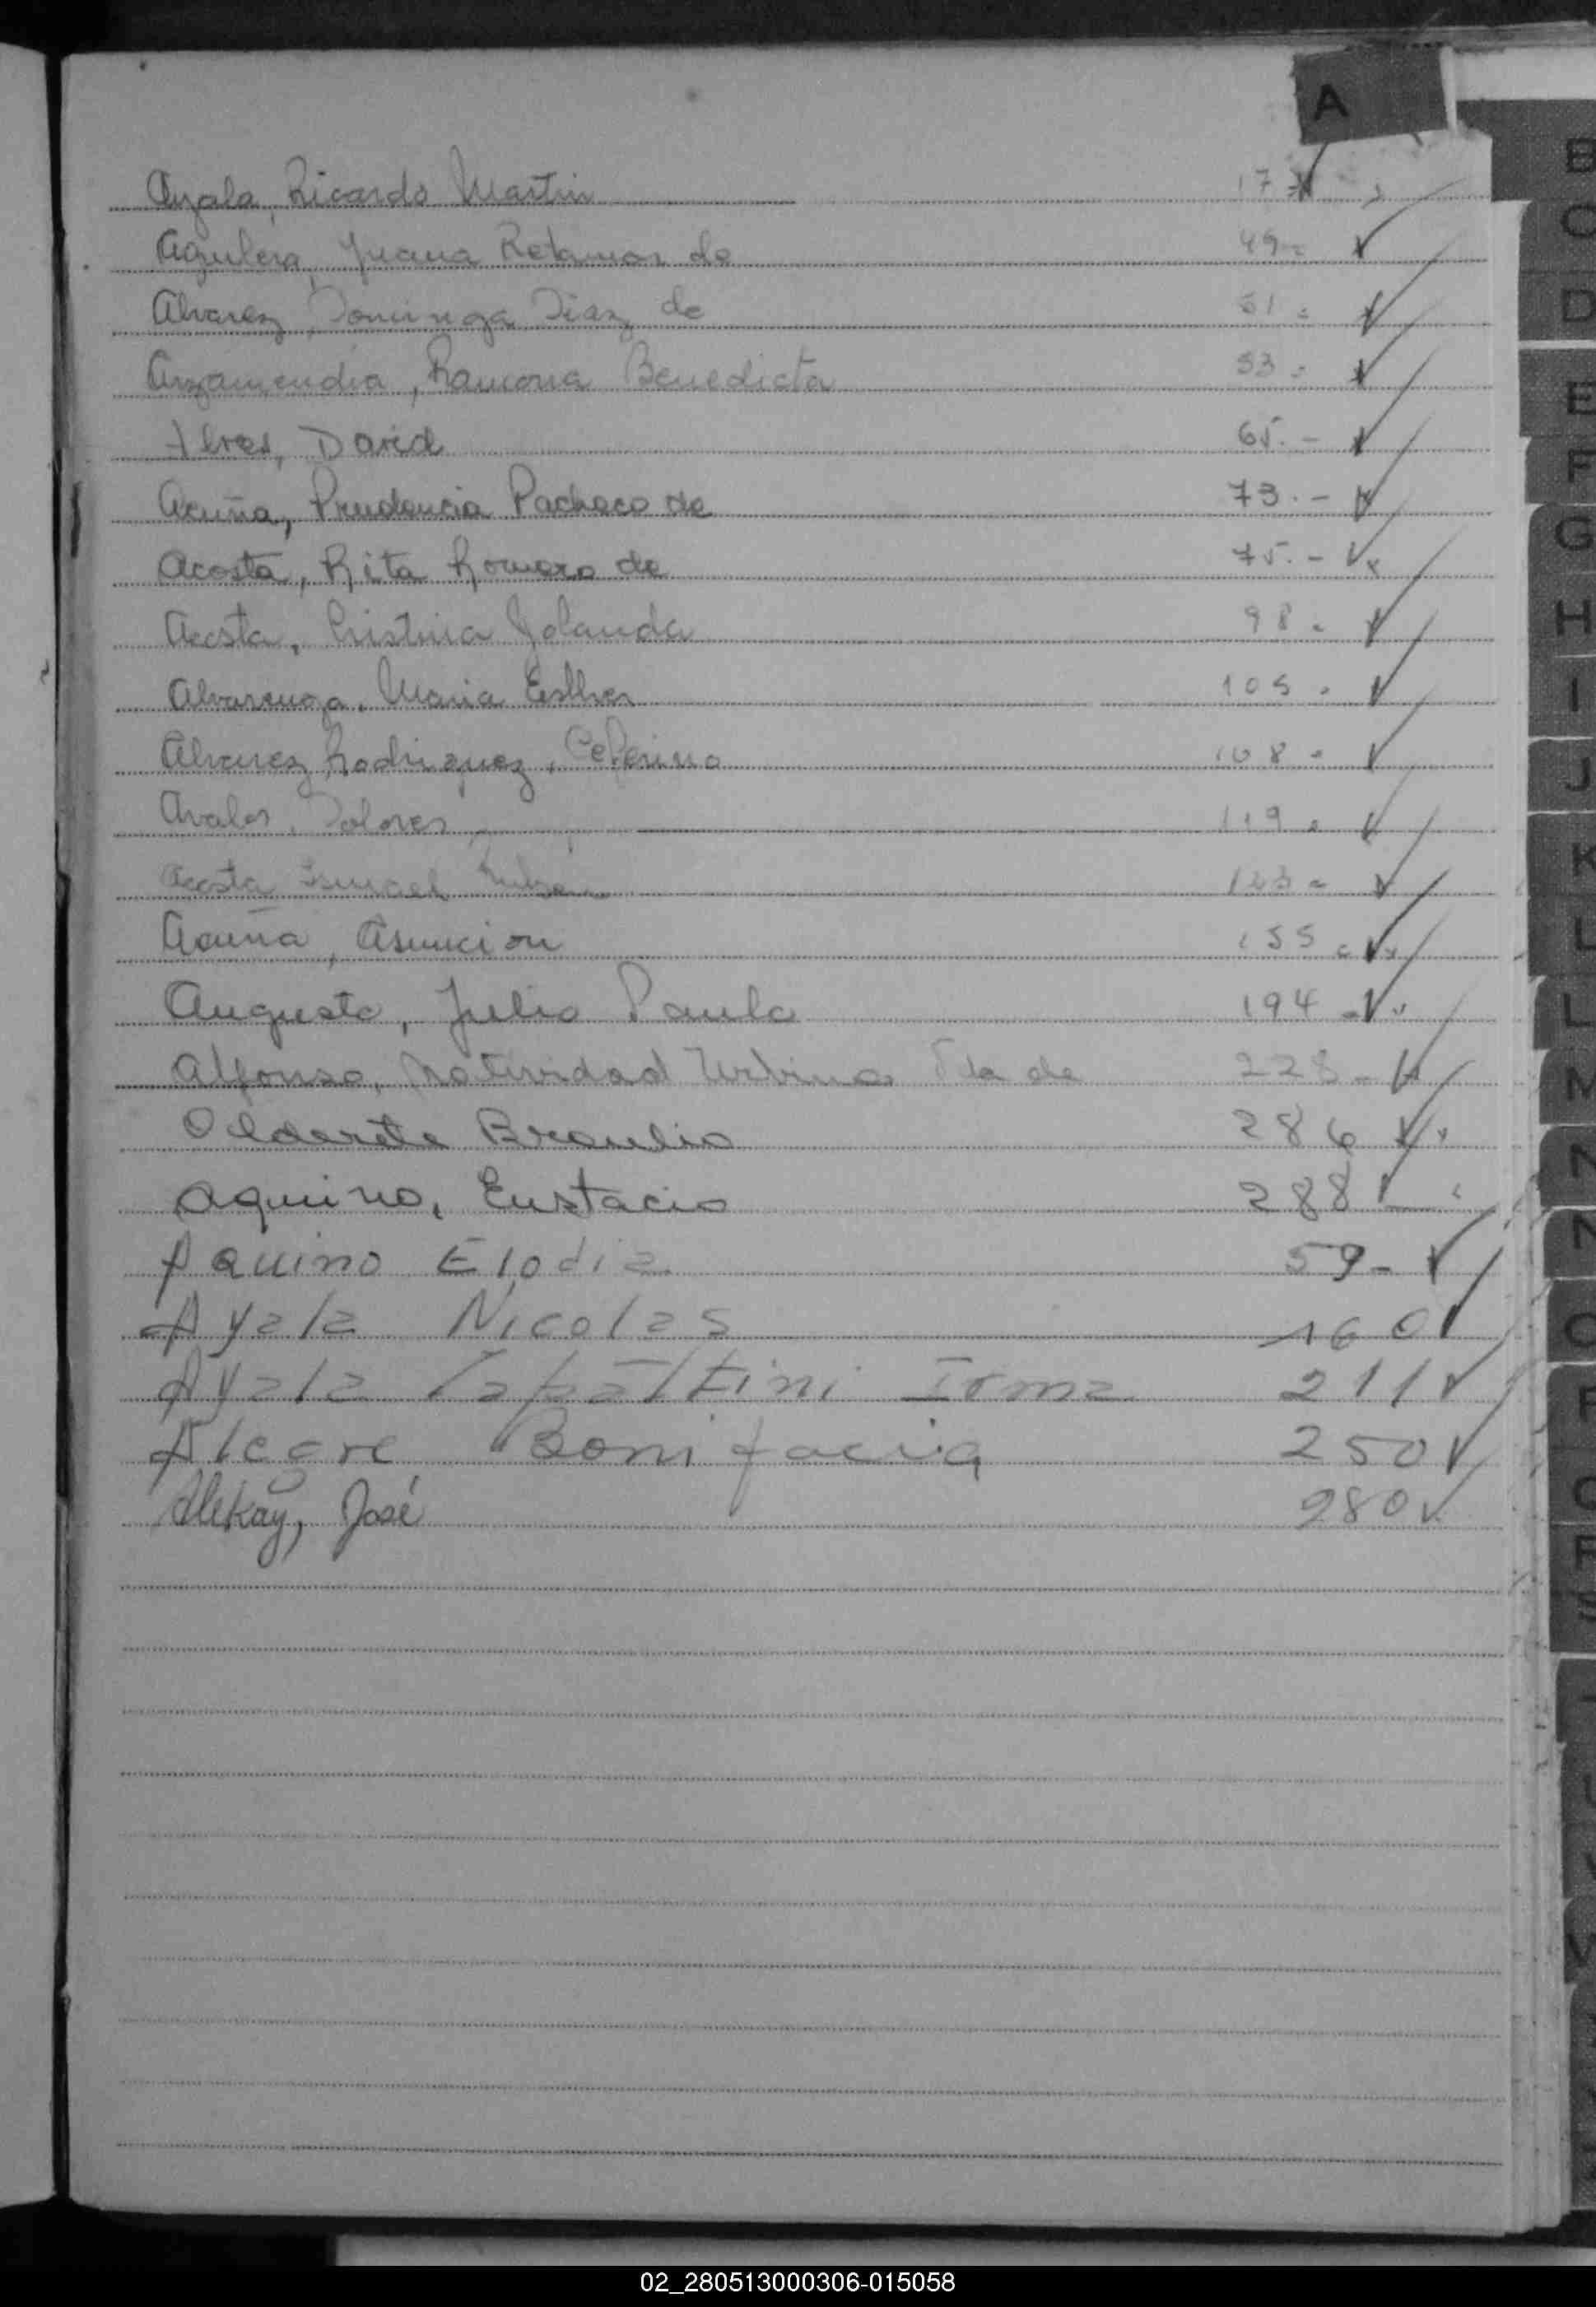 A
Ayala, Ricardo Martin 17
Aguilera, Juana Retamar de 49=
Alvarez, Dominga Diaz de 51=
Arzamendia, Ramona Benedicta 53=
Alves, David 65.-
Acuña, Prudencia Pacheco de 73.-
Acosta, Rita Romero de 75.-
Acosta, Cristina Yolanda 98=
Alvarenga, Maria Esther 105=
Alvarez Rodriguez, Ceferino 108=
Avalos, Dolores 119=
Acosta Ismael Ruben 123=
Acuña, Asuncion 155=
Augusto, Julio Paulo 194-
Alfonso, Natividad Urbina Vda de 228-
Alderete Braulio 286
Aquino, Eustacio 288
Aquino Elodia 59-
Ayala Nicolas 160
Ayala Zapattini Irma 211
Alegre Bonifacia 250
Alekay, José 280
B
C
D
E
F
G
H
I
J
K
L
M
N
O
P
Q
R
S
02_280513000306-015058